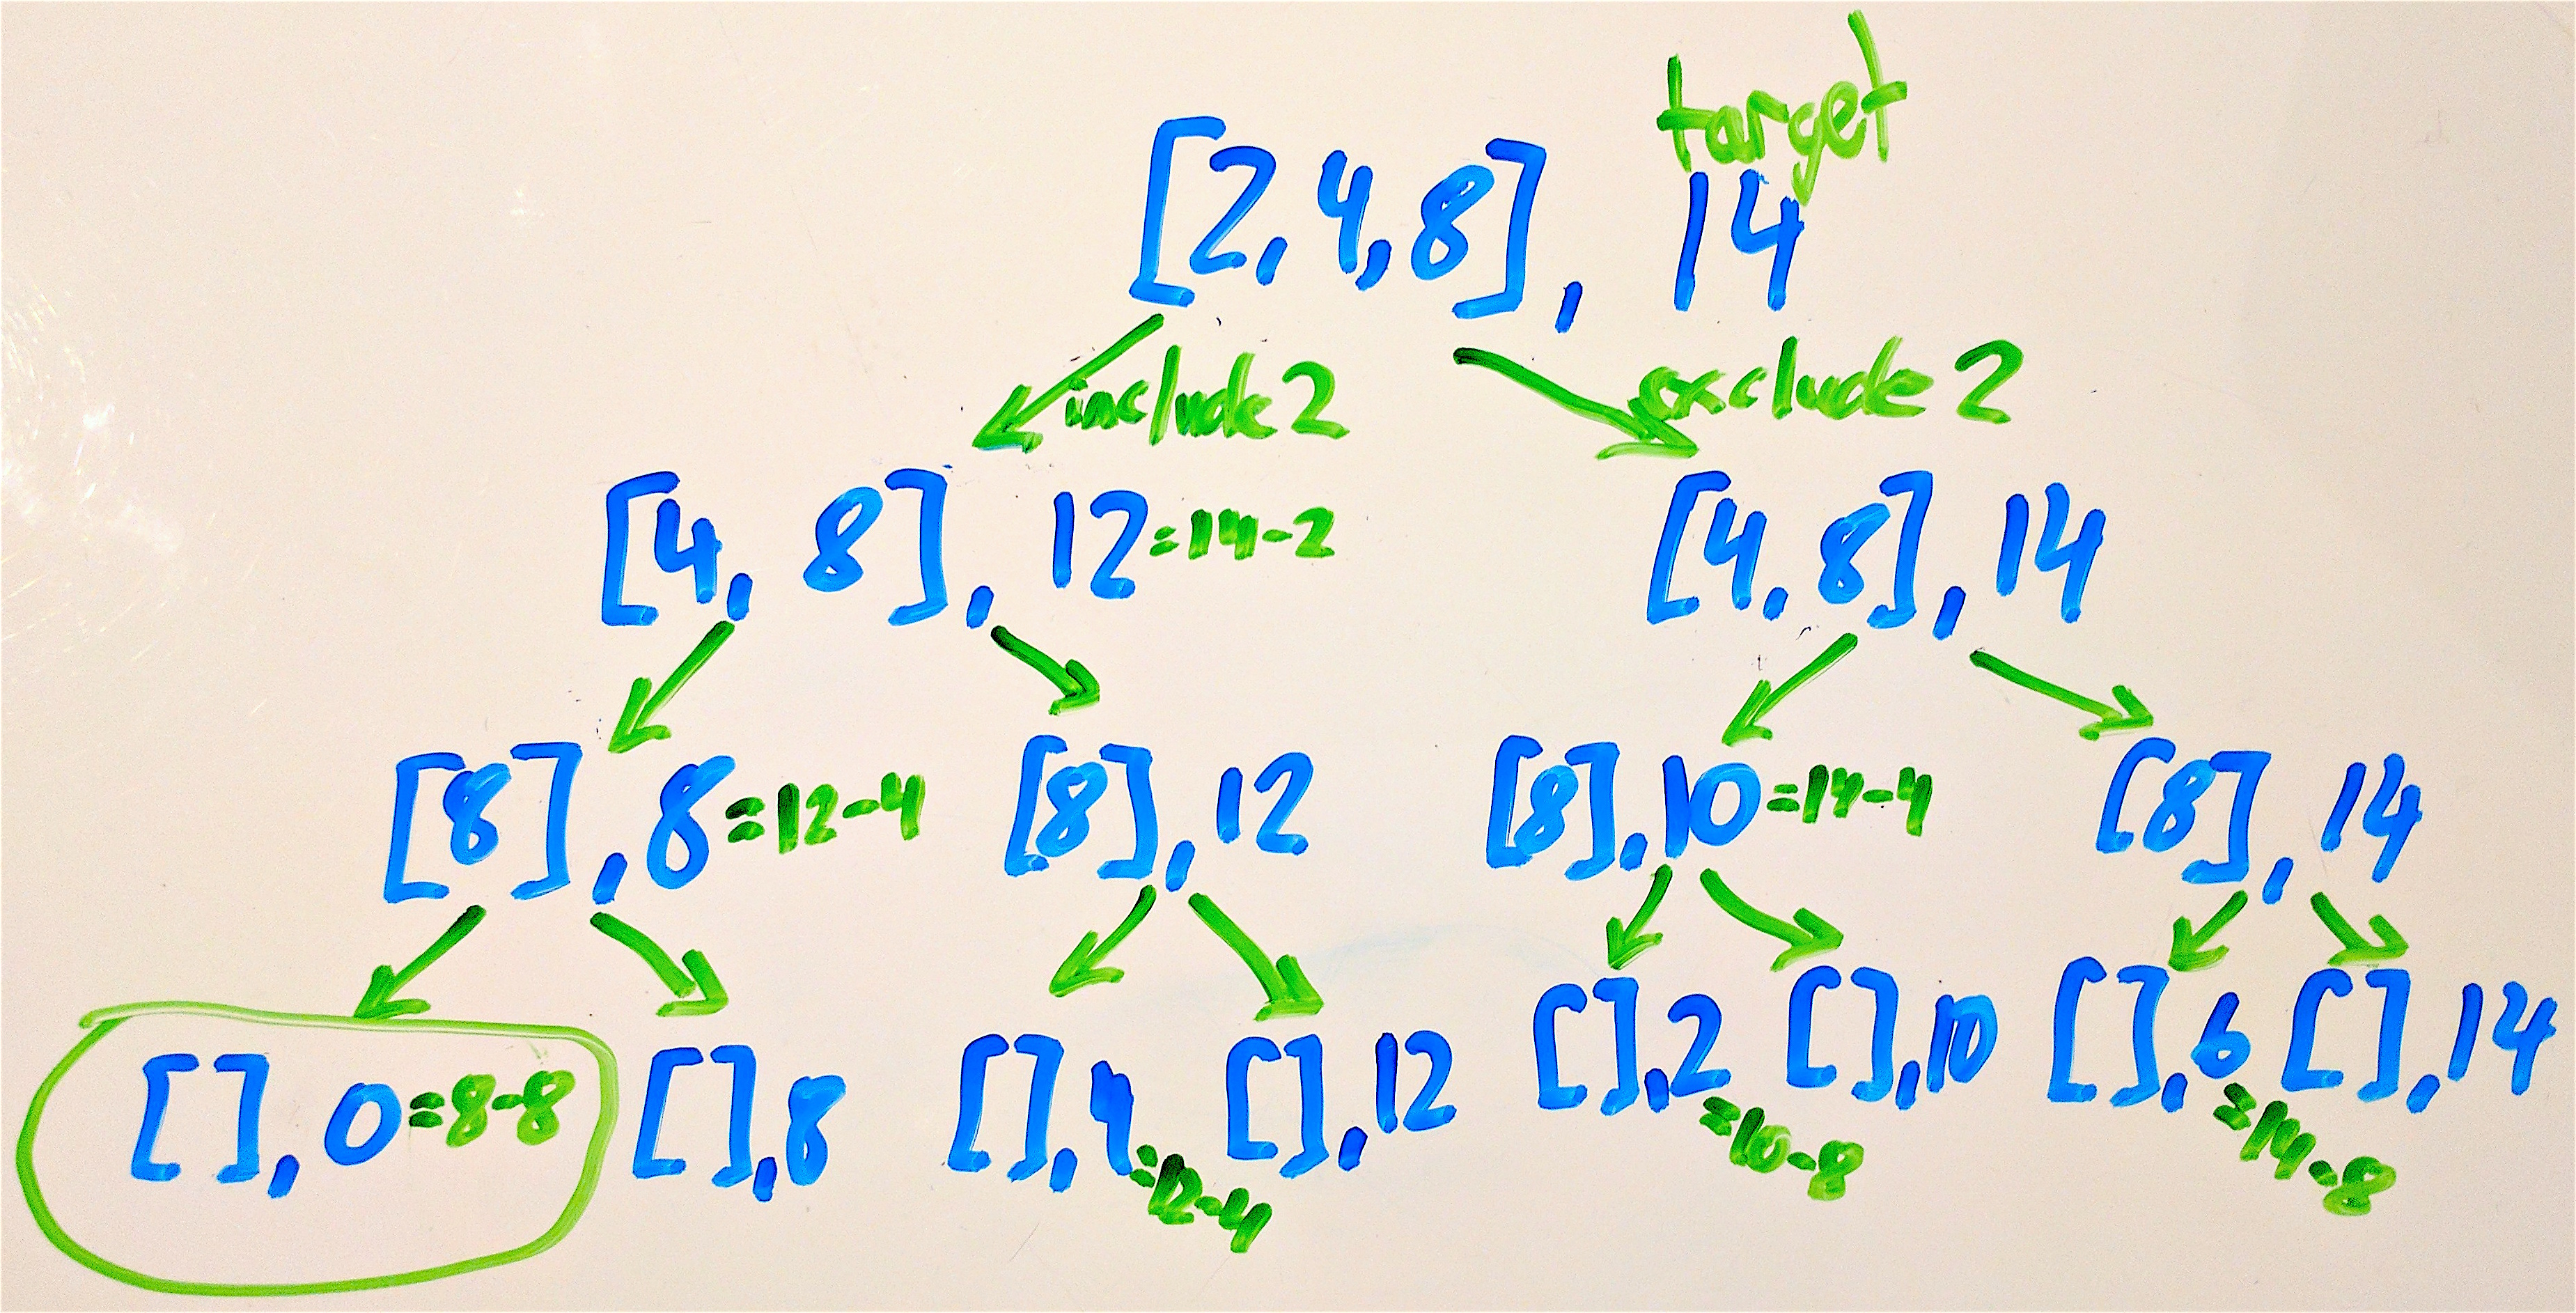 target
[2,4,8], 14
include 2 exclude 2
[4, 8], 12=14-2 [4,8], 14
[8], 8=12-4 [8], 12 [8], 10=14-4 [8], 14
[], 0=8-8 [], 8 [], 4 [], 12 [], 2 [], 10 [], 6 [], 14
=12-4 =10-8 =14-8